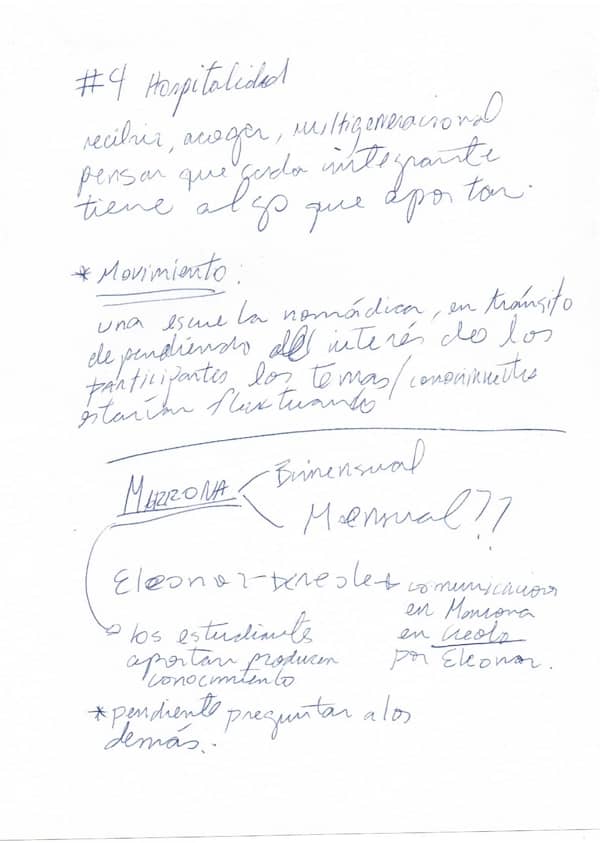 #4 Hospitalidad
recibir, acoger, multigeneracional
pensar que cada integrante
tiene algo que aportar.
* Movimiento:
una escuela nomádica, en tránsito
dependiendo del interés de los
participantes los temas/conocimientos
estarían fluctuando
MARRONA
Bimensual
Mensual??
Eleonor
comunicacion
en Marrona
en Creole
por Eleonor.
los estudiantes
aportan producen
conocimiento
*pendiente preguntar a los
demás..